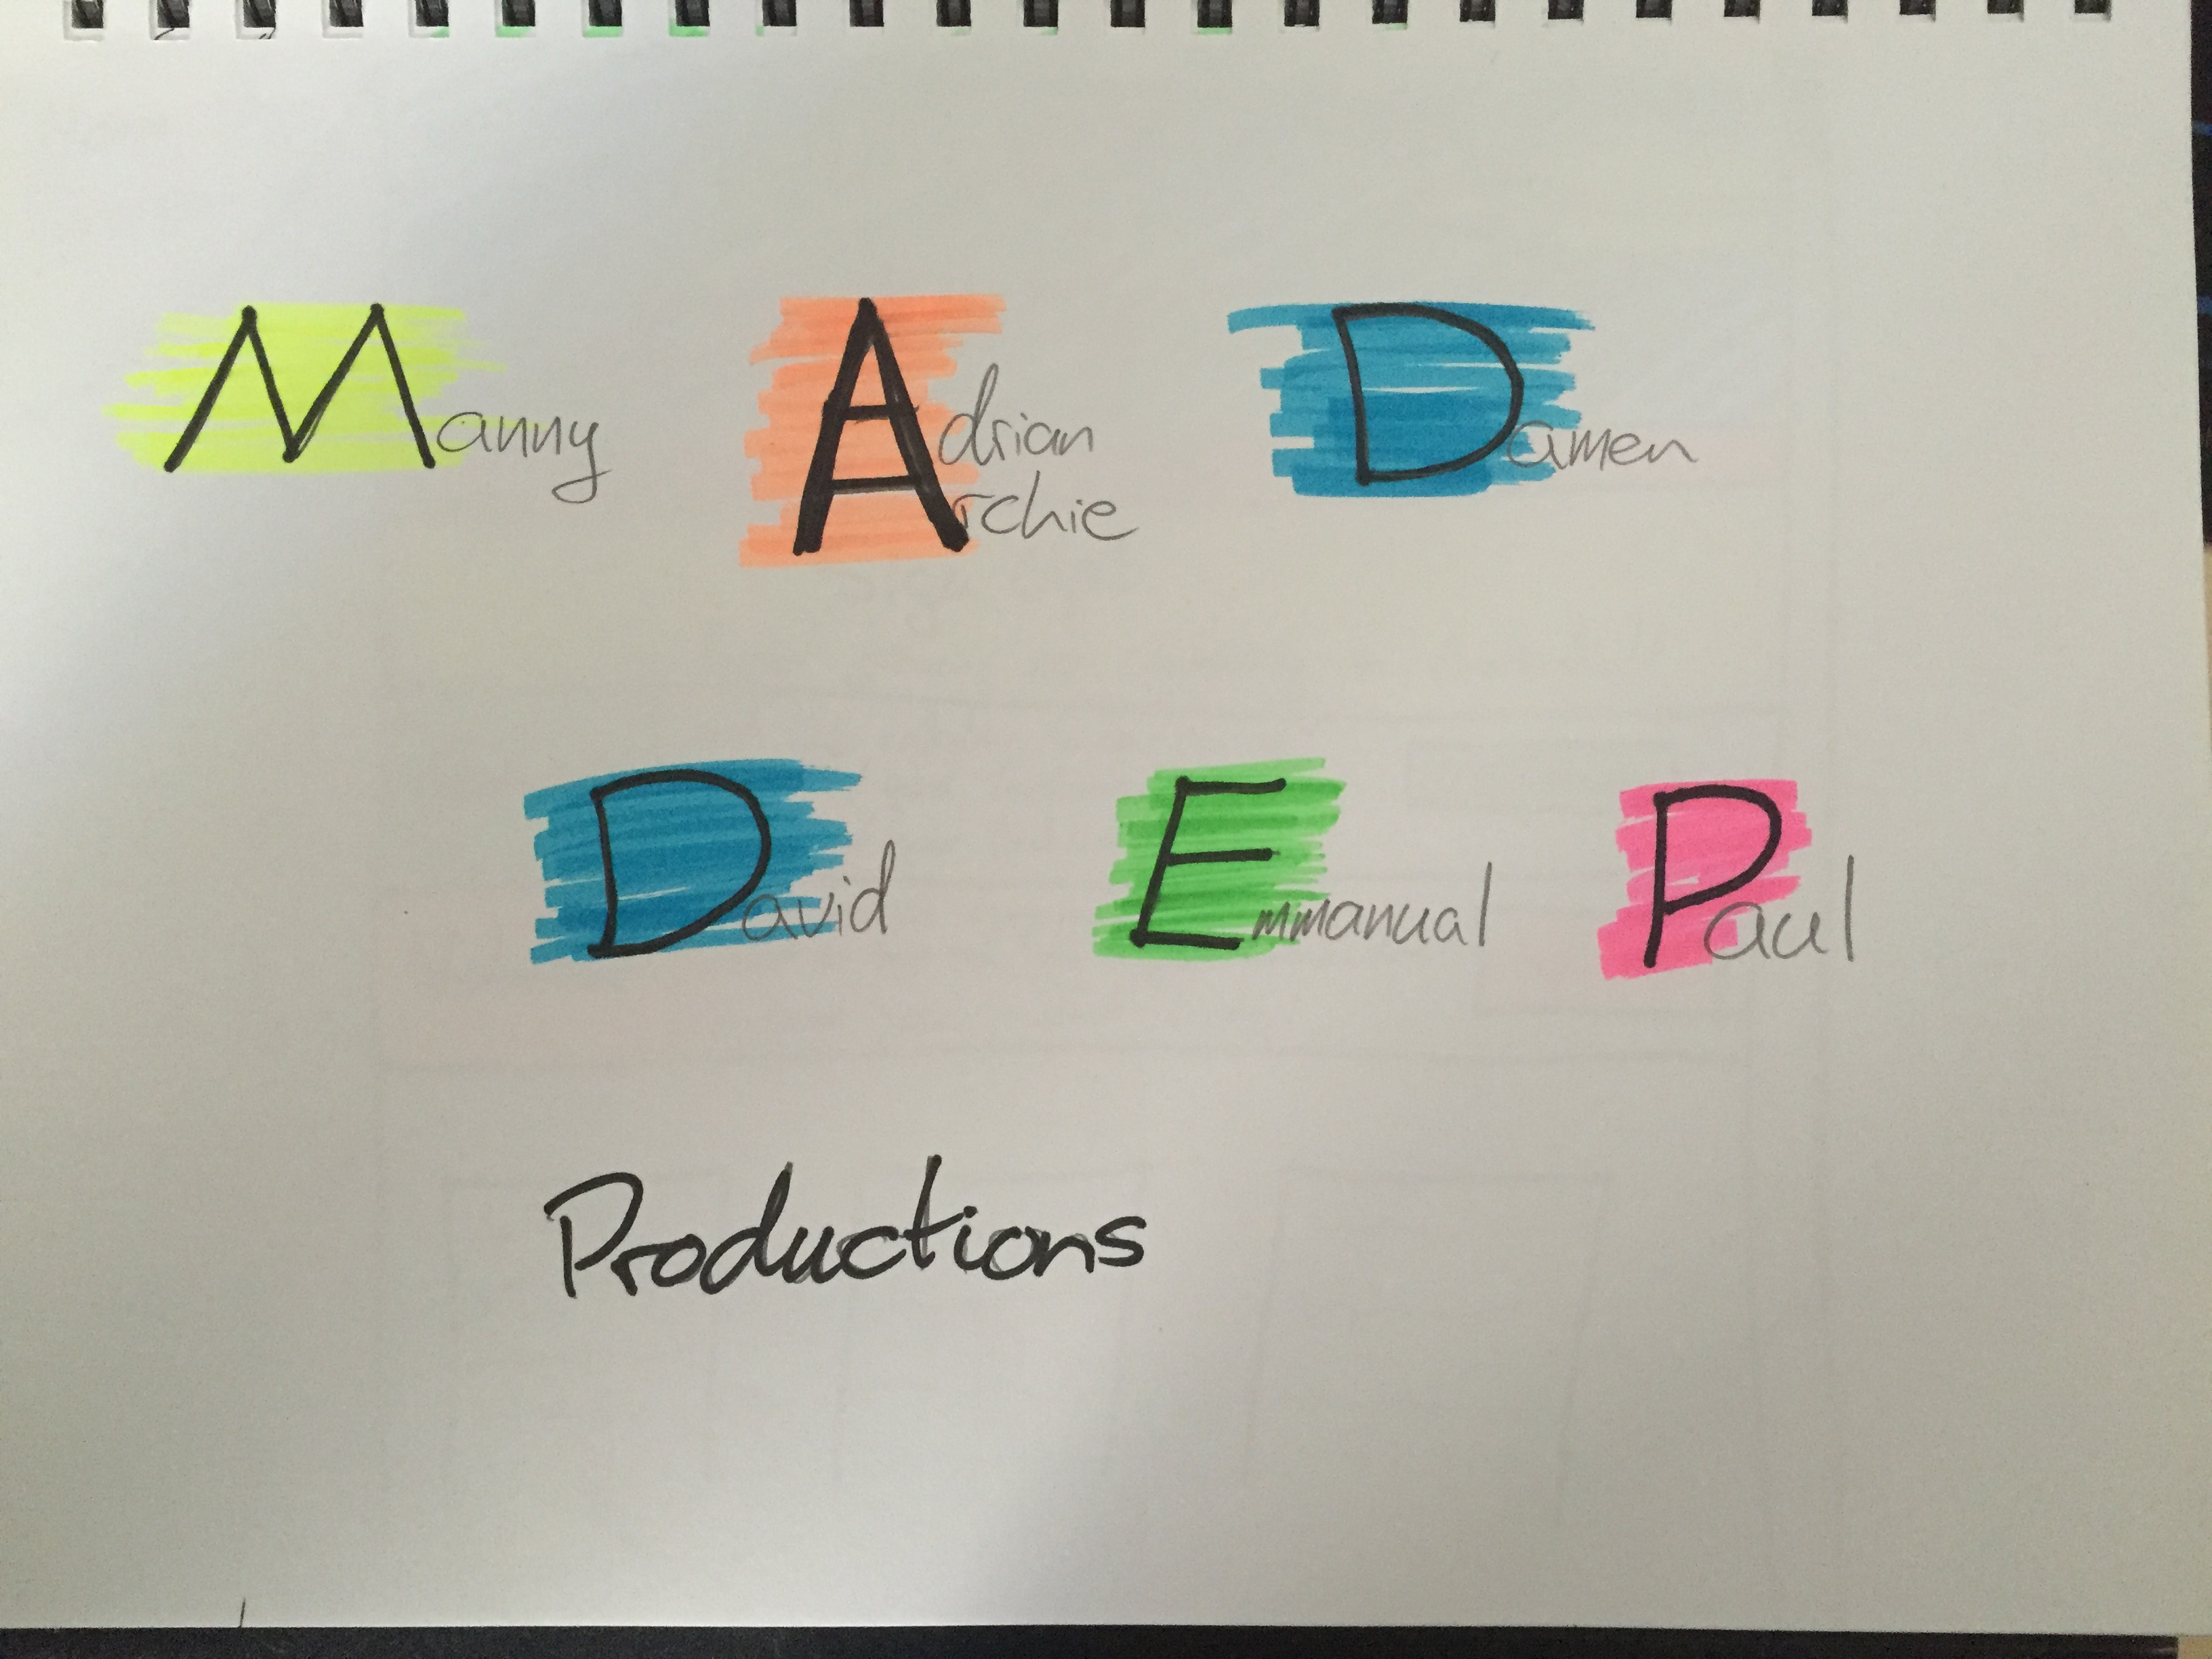 Manny Adrian Damen
Archie
David Emmanual Paul
Productions